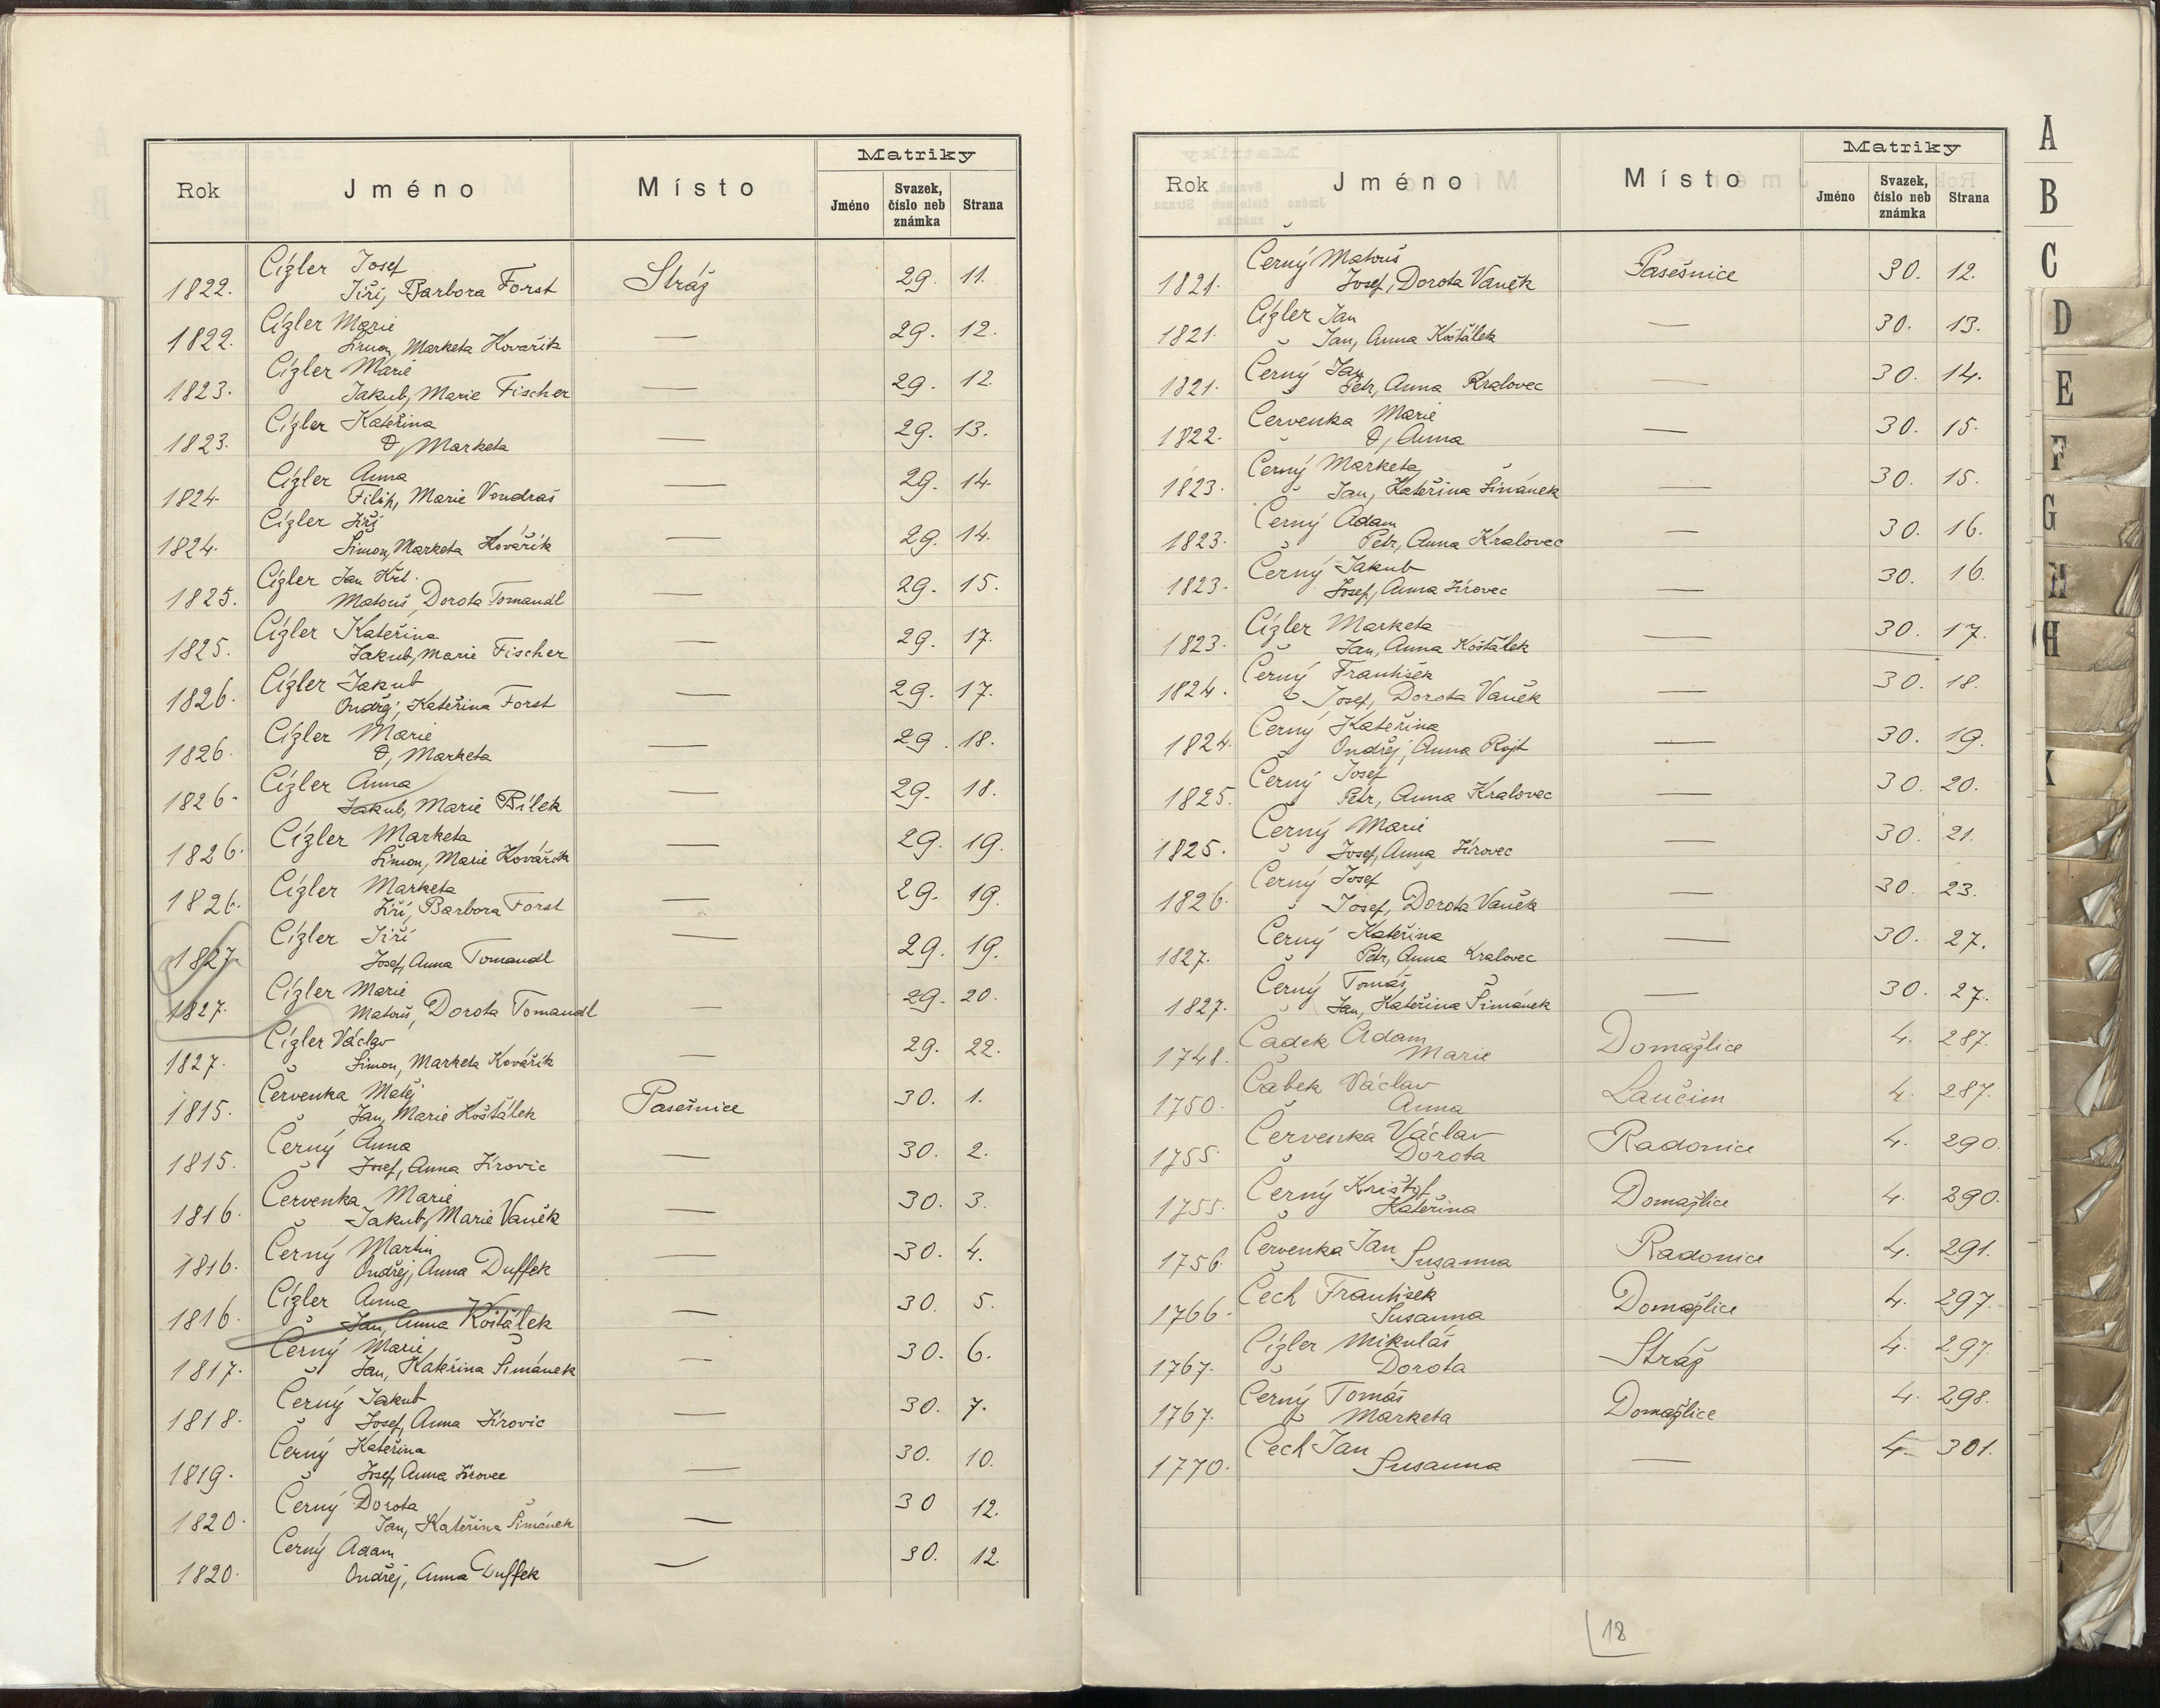 Rok Jméno Místo Matriky
Jméno Svazek, číslo neb známka Strana
1822. Cízler Josef
Jiří, Barbora Forst Stráž 29. 11.
1822. Cízler Marie
Šimon, Marketa Kovařik — 29. 12.
1823. Cízler Marie
Jakub, Marie Fischer — 29. 12.
1823. Cízler Kateřina
Marketa — 29. 13.
1824. Cízler Anna
Filip, Marie Vondraš — 29. 14.
1824. Cízler Jiří
Šimon, Marketa Kovářík — 29. 14.
1825. Cízler Jan Křt.
Matouš, Dorota Tomandl — 29. 15.
1825. Cízler Kateřina
Jakub, Marie Fischer — 29. 17.
1826. Cízler Jakub
Ondřej, Kateřina Forst — 29. 17.
1826. Cízler Marie
Marketa — 29. 18.
1826. Cízler Anna
Jakub, Marie Bílek — 29. 18.
1826. Cízler Marketa
Šimon, Marie Kovářik — 29. 19.
1826. Cízler Marketa
Jiří, Barbora Forst — 29. 19.
1827. Cízler Jiří
Josef, Anna Tomandl — 29. 19.
1827. Cízler Marie
Matouš, Dorota Tomandl — 29. 20.
1827. Cízler Václav
Šimon, Marketa Kovářík — 29. 22.
1815. Červenka Matěj
Jan, Marie Košťálek Pasešnice 30. 1.
1815. Černý Anna
Josef, Anna Jírovic — 30. 2.
1816. Červenka Marie
Jakub, Marie Vaněk — 30. 3.
1816. Černý Martin
Ondřej, Anna Duffek — 30. 4.
1816. Cízler Anna
Jan, Anna Košťálek — 30. 5.
1817. Černý Marie
Jan, Kateřina Šimánek — 30. 6.
1818. Černý Jakub
Josef, Anna Jírovic — 30. 7.
1819. Černý Kateřina
Josef, Anna Jírovec — 30. 10.
1820. Černý Dorota
Jan, Kateřina Šimánek — 30 12.
1820. Černý Adam
Ondřej, Anna Duffek — 30. 12.
Rok Jméno Místo Matriky
Jméno Svazek, číslo neb známka Strana
1821. Černý Matouš
Josef, Dorota Vaněk Pasešnice 30. 12.
1821. Cízler Jan
Jan, Anna Košťálek — 30. 13.
1821. Černý Jan
Petr, Anna Kralovec — 30. 14.
1822. Červenka Marie
Anna — 30. 15.
1823. Černý Marketa
Jan, Kateřina Šimánek — 30. 15.
1823. Černý Adam
Petr, Anna Kralovec — 30. 16.
1823. Černý Jakub
Josef, Anna Jírovec — 30. 16.
1823. Cízler Marketa
Jan, Anna Košťálek — 30. 17.
1824. Černý František
Josef, Dorota Vaněk — 30. 18.
1824. Černý Kateřina
Ondřej, Anna Rojt — 30. 19.
1825. Černý Josef
Petr, Anna Kralovec — 30. 20.
1825. Černý Marie
Josef, Anna Jírovec — 30. 21.
1826. Černý Josef
Josef, Dorota Vaněk — 30. 23.
1827. Černý Kateřina
Petr, Anna Kralovec — 30. 27.
1827. Černý Tomáš
Jan, Kateřina Šimánek — 30. 27.
1748. Čadek Adam
Marie Domažlice 4. 287.
1750. Čabek Václav
Anna Laučim 4. 287.
1755. Červenka Václav
Dorota Radonice 4. 290.
1755. Černý Krištof
Kateřina Domažlice 4. 290.
1756. Červenka Jan
Susanna Radonice 4. 291.
1766. Čech František
Susanna Domažlice 4. 297.
1767. Cízler Mikuláš
Dorota Stráž 4. 297.
1767. Černý Tomáš
Marketa Domažlice 4. 298.
1770. Čech Jan
Susanna — 4. 301.
18
A
B
C
D
E
F
G
H
H
K